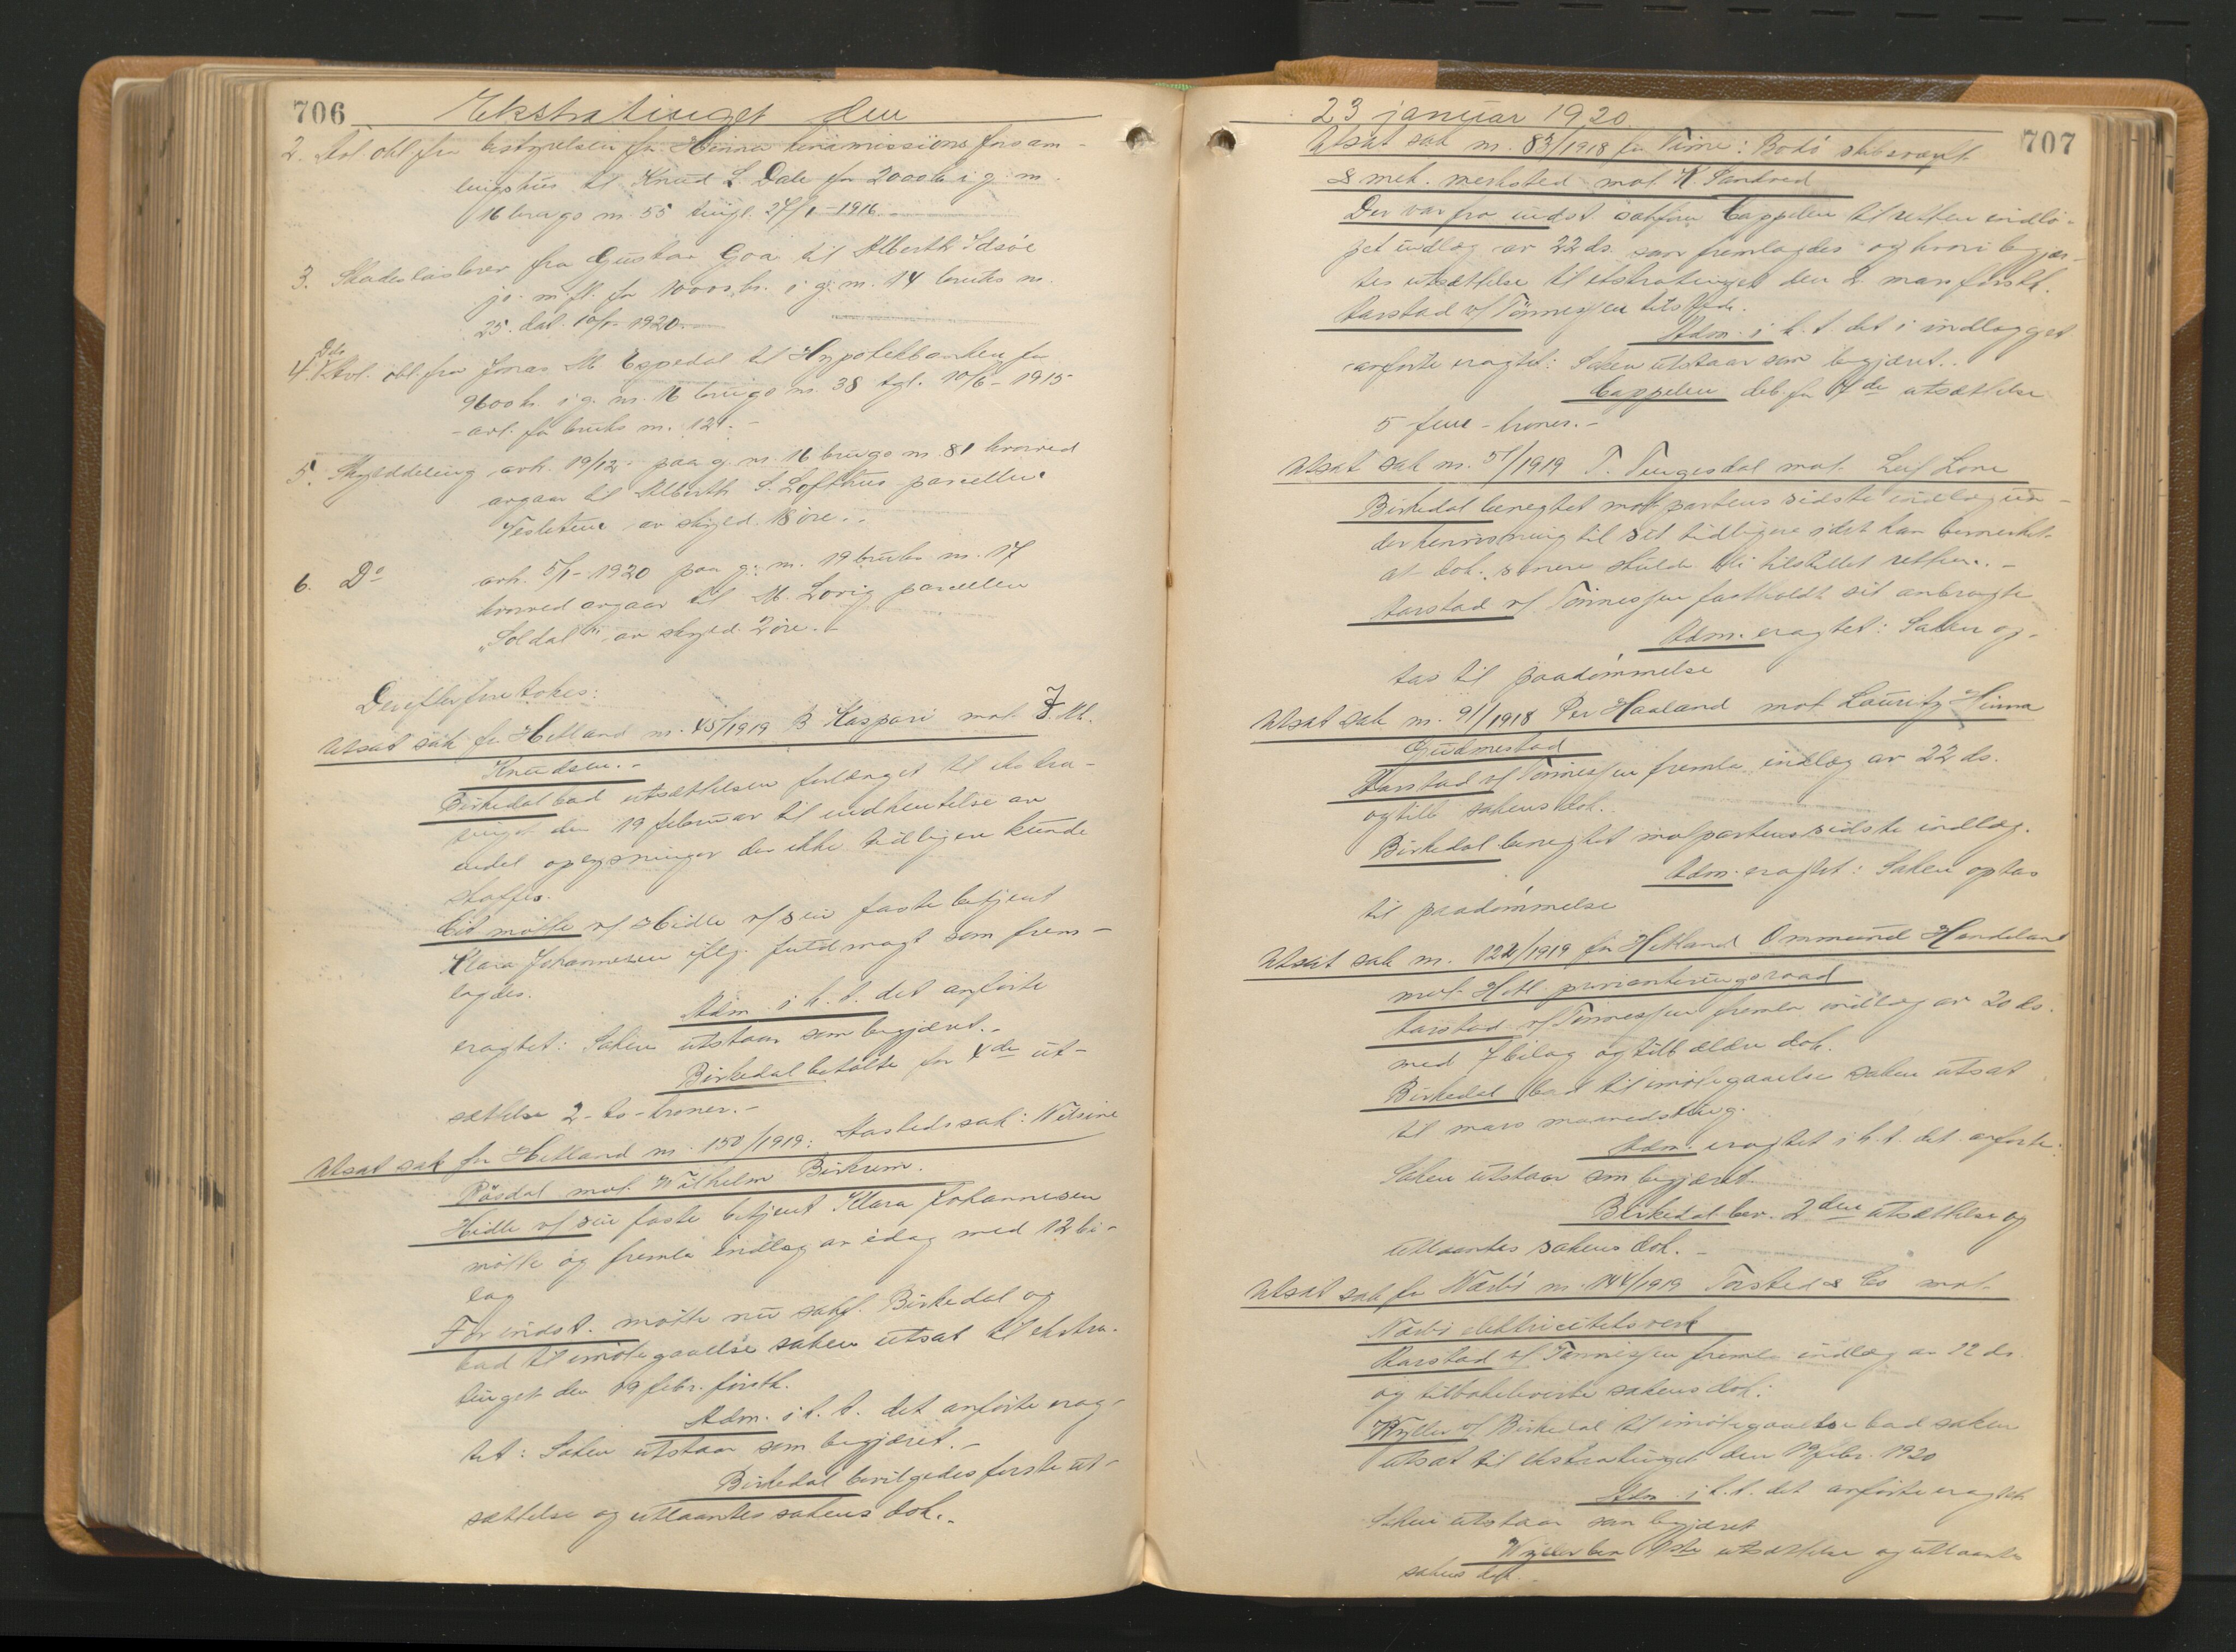 706 Ekstratinget den
2. Avl. obl. fra bestyrelsen for Hinna kinamissions forsam-
lingshus til Knud L Dale for 2000 kr i g. nr.
16 brugs nr. 55 tingl. 27/1-1916.
3. Skadesløsbrev fra Gustav Goa til Alberth Idsøe
jr. m. fl. for 10000 kr. i g. nr. 14 bruks nr.
25. dat. 10/1 1920.
4. Do Kvl. obl. fra Jonas M Espedal til Hypotekbanken for
9600 kr. i g. nr. 16 brugs nr. 38 tgl. 10/6-1915
- avl. for bruks nr. 121. -
5. Skylddeling avh. 19/12 paa g. nr. 16 brugs nr. 81 hvorved
avgaar til Alberth S. Lofthus parcellen
Vesletun av skyld 18 øre. -
6. Do avh. 5/1-1920 paa g. nr. 19 bruks nr. 17
hvorved avgaar til M. Lorig parcellen
"Soldal" av skyld 2 øre. -
Derefter foretokes:
Utsat sak for Hetland nr. 45/1919 B Kaspari mot J. M.
Knudsen. -
Birkedal bad utsættelsen forlænget til ekstra-
tinget den 19 februar til indhentelse av
endel oplysninger der ikke tidligere kunde
skaffes.
Cit. møtte v/ Hidle v/ sin faste betjent
Klara Johannesen iflg. fuldmagt som frem-
lagdes.
Adm. i h. t. det anførte
eragtet: Saken utstaar som begjæret. -
Birkedal betalte for 4de ut-
sættelse 2 - to - kroner. -
Utsat sak for Hetland nr. 150/1919: Aastedssak: Nilsine
Røsdal mot Wilhelm Birkrem.
Hidle v/ sin faste betjent Klara Johannesen
møtte og fremla indlæg av idag med 12 bi-
lag
For indst. møtte nu sakf. Birkedal og
bad til imøtegaaelse saken utsat til ekstra-
tinget den 19 febr. førsth.
Adm. i h. t. det anførte erag-
tet: Saken utstaar som begjæret. -
Birkedal bevilgedes første ut-
sættelse og utlaantes sakens dok. -
23 januar 1920 707
Utsat sak nr. 83/1918 for Time: Bodø skibsværft
& mek. verksted mot K. Sandved
Der var fra indst. sakfører Cappelen til retten indlø-
pet indlæg av 22 ds. som fremlagdes og hvori begjær-
tes utsættelse til ekstratinget den 2 mars førstk.
Aarstad v/ Tønnessen tilstede.
Adm. i h. t. det i indlægget
anførte eragtet: Saken utstaar som begjæret. -
Cappelen deb. for 7de utsættelse
5 fem - kroner. -
Utsat sak nr. 51/1919 T. Tengesdal mot Leif Lone
Birkedal benegtet motpartens sidste indlæg un-
der henvisning til sit tidligere idet han bemerket
at dok. senere skulde bli tilstillet retten. -
Aarstad v/ Tønnessen fastholdt sit anbragte
Adm. eragtet: Saken op-
tas til paadømmelse
Utsat sak nr. 91/1918 Per Haaland mot Lauritz Hinna
Gudmestad
Aarstad v/ Tønnessen fremla indlæg av 22 ds.
og tilb. sakens dok.
Birkedal benegtet motpartens sidste indlæg.
Adm. eragtet: Saken optas
til paadømmelse
Utsat sak nr. 122/1919 for Hetland Ommund Handeland
mot Hetl. provianteringsraad
Aarstad v/ Tønnessen fremla indlæg av 20 ds.
med 7 bilag og tilb ældre dok.
Birkedal bad til imøtegaaelse saken utsat
til mars maanedsting.
Adm. eragtet i h. t. det anførte:
Saken utstaar som begjæret.
Birkedal bev. 2den utsættelse og
utlaantes sakens dok. -
Utsat sak for Nærbø nr. 144/1919 Torsted & Co mot
Nærbø elektricitetsverk
Aarstad v/ Tønnessen fremla indlæg av 12 ds.
og tilbakeleverte sakens dok.
Wyller v/ Birkedal til imøtegaaelse bad saken
utsat til ekstratinget den 19 febr. 1920
Adm. i h. t. det anførte eragtet
Saken utstaar som begjæret
Wyller bev 1ste utsættelse og utlaantes
sakens dok. -